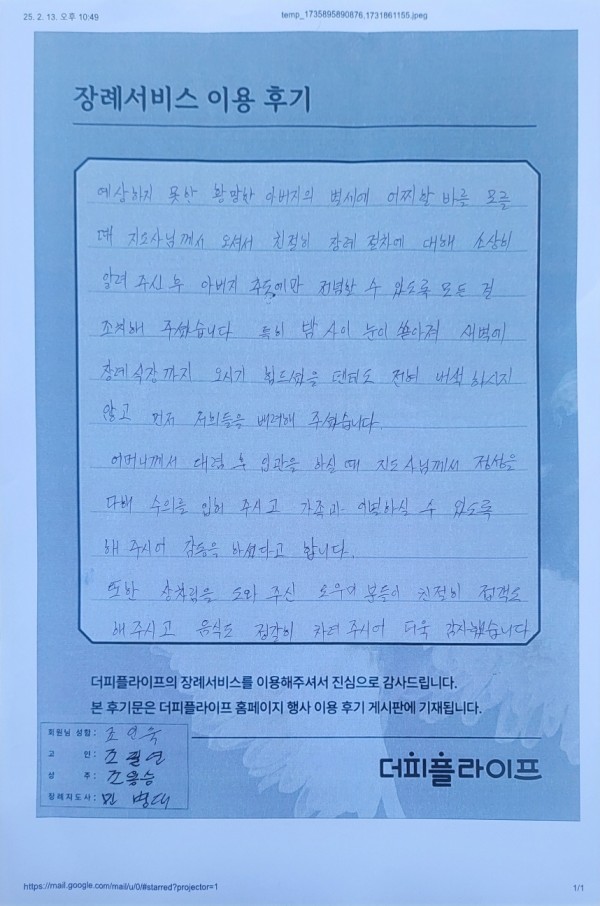 25. 2. 13. 오후 10:49
temp_1735895890876.1731861155.jpeg
장례서비스 이용 후기
예상하지 못한 황망한 아버지의 별세에 어찌할 바를 모를
때 지도사님께서 오셔서 친절히 장례 절차에 대해 소상히
알려 주신 후 아버지 추도에만 전념할 수 있도록 모든 걸
조치해 주셨습니다 특히 밤 사이 눈이 쏟아져 새벽에
장례식장까지 오시기 힘드셨을 텐데도 전혀 내색 하시지
않고 먼저 저희들을 배려해 주셨습니다.
어머니께서 대령 후 입관을 하실 때 지도사님께서 정성을
다해 수의를 입혀 주시고 가족과 이별하실 수 있도록
해 주시어 감동을 하셨다고 합니다.
또한 상차림을 도와 주신 도우미 분들이 친절히 접객도
해 주시고 음식도 정갈히 차려 주시어 더욱 감사했습니다
더피플라이프의 장례서비스를 이용해주셔서 진심으로 감사드립니다.
본 후기문은 더피플라이프 홈페이지 행사 이용 후기 게시판에 기재됩니다.
회원님 성함 : 조인욱
고 인 : 조필연
상 주 : 조용승
장례지도사 : 민병대
더피플라이프
https://mail.google.com/mail/u/0/#starred?projector=1
1/1